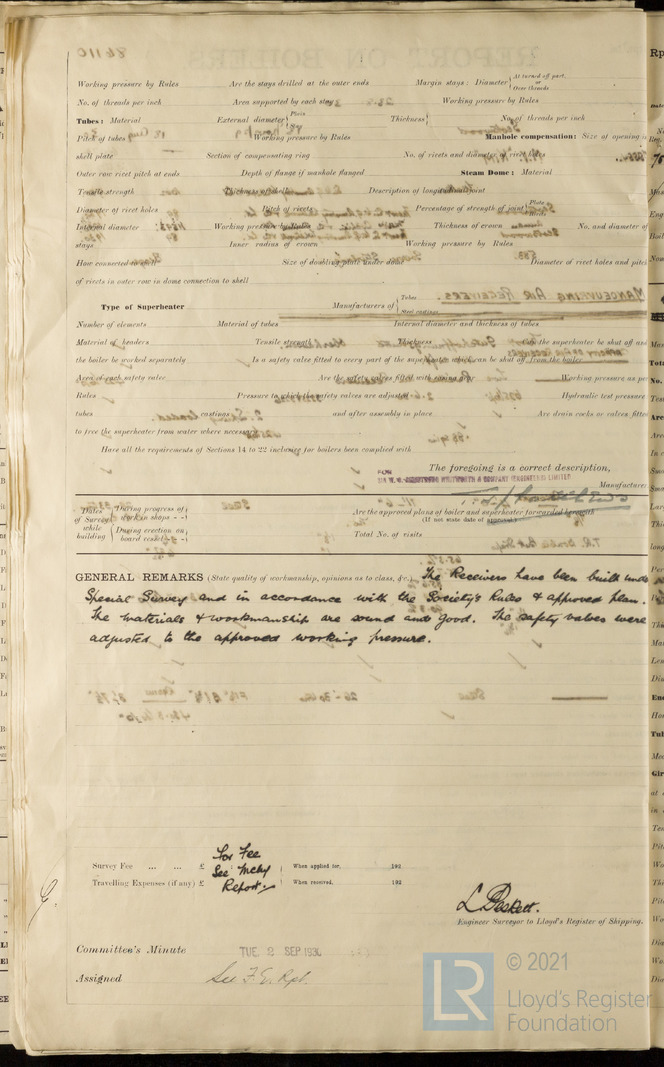 Working pressure by Rules Are the stays drilled at the outer ends Margin stays: Diameter { At turned off part, or Over threads
No. of threads per inch Area supported by each stay Working pressure by Rules
Tubes: Material External diameter { Plain Stay Thickness { No. of threads per inch
Pitch of tubes Working pressure by Rules Manhole compensation: Size of opening in
shell plate Section of compensating ring No. of rivets and diameter of rivet holes
Outer row rivet pitch at ends Depth of flange if manhole flanged Steam Dome: Material
Tensile strength Thickness of shell Description of longitudinal joint
Diameter of rivet holes Pitch of rivets Percentage of strength of joint { Plate Rivets
Internal diameter Working pressure by Rules Thickness of crown No. and diameter of
stays Inner radius of crown Working pressure by Rules
How connected to shell Size of doubling plate under dome Diameter of rivet holes and pitch
of rivets in outer row in dome connection to shell
Type of Superheater Manufacturers of { Tubes Steel castings
Number of elements Material of tubes Internal diameter and thickness of tubes
Material of headers Tensile strength Thickness Can the superheater be shut off and
the boiler be worked separately Is a safety valve fitted to every part of the superheater which can be shut off from the boiler
Area of each safety valve Are the safety valves fitted with easing gear Working pressure as per
Rules Pressure to which the safety valves are adjusted Hydraulic test pressure
tubes castings and after assembly in place Are drain cocks or valves fitted
to free the superheater from water where necessary
Have all the requirements of Sections 14 to 22 inclusive for boilers been complied with
The foregoing is a correct description,
FOR
SIR W. G. ARMSTRONG WHITWORTH & COMPANY (ENGINEERS) LIMITED
Manufacturer
Dates of Survey while building { During progress of work in shops - - Are the approved plans of boiler and superheater forwarded herewith
(If not state date of approval.)
During erection on board vessel - - - Total No. of visits
GENERAL REMARKS (State quality of workmanship, opinions as to class, &c.) The Receivers have been built under
Special Survey and in accordance with the Society's Rules & approved plan.
The materials & workmanship are sound and good. The safety valves were
adjusted to the approved working pressure.
For Fee
Survey Fee ... ... £ See Mchy When applied for, 192
Travelling Expenses (if any) £ Report. When received, 192
L. Beskett.
Engineer Surveyor to Lloyd's Register of Shipping.
Committee's Minute TUE. 2 SEP 1930
Assigned See F.E. Rpt.
LR © 2021
Lloyd's Register
Foundation